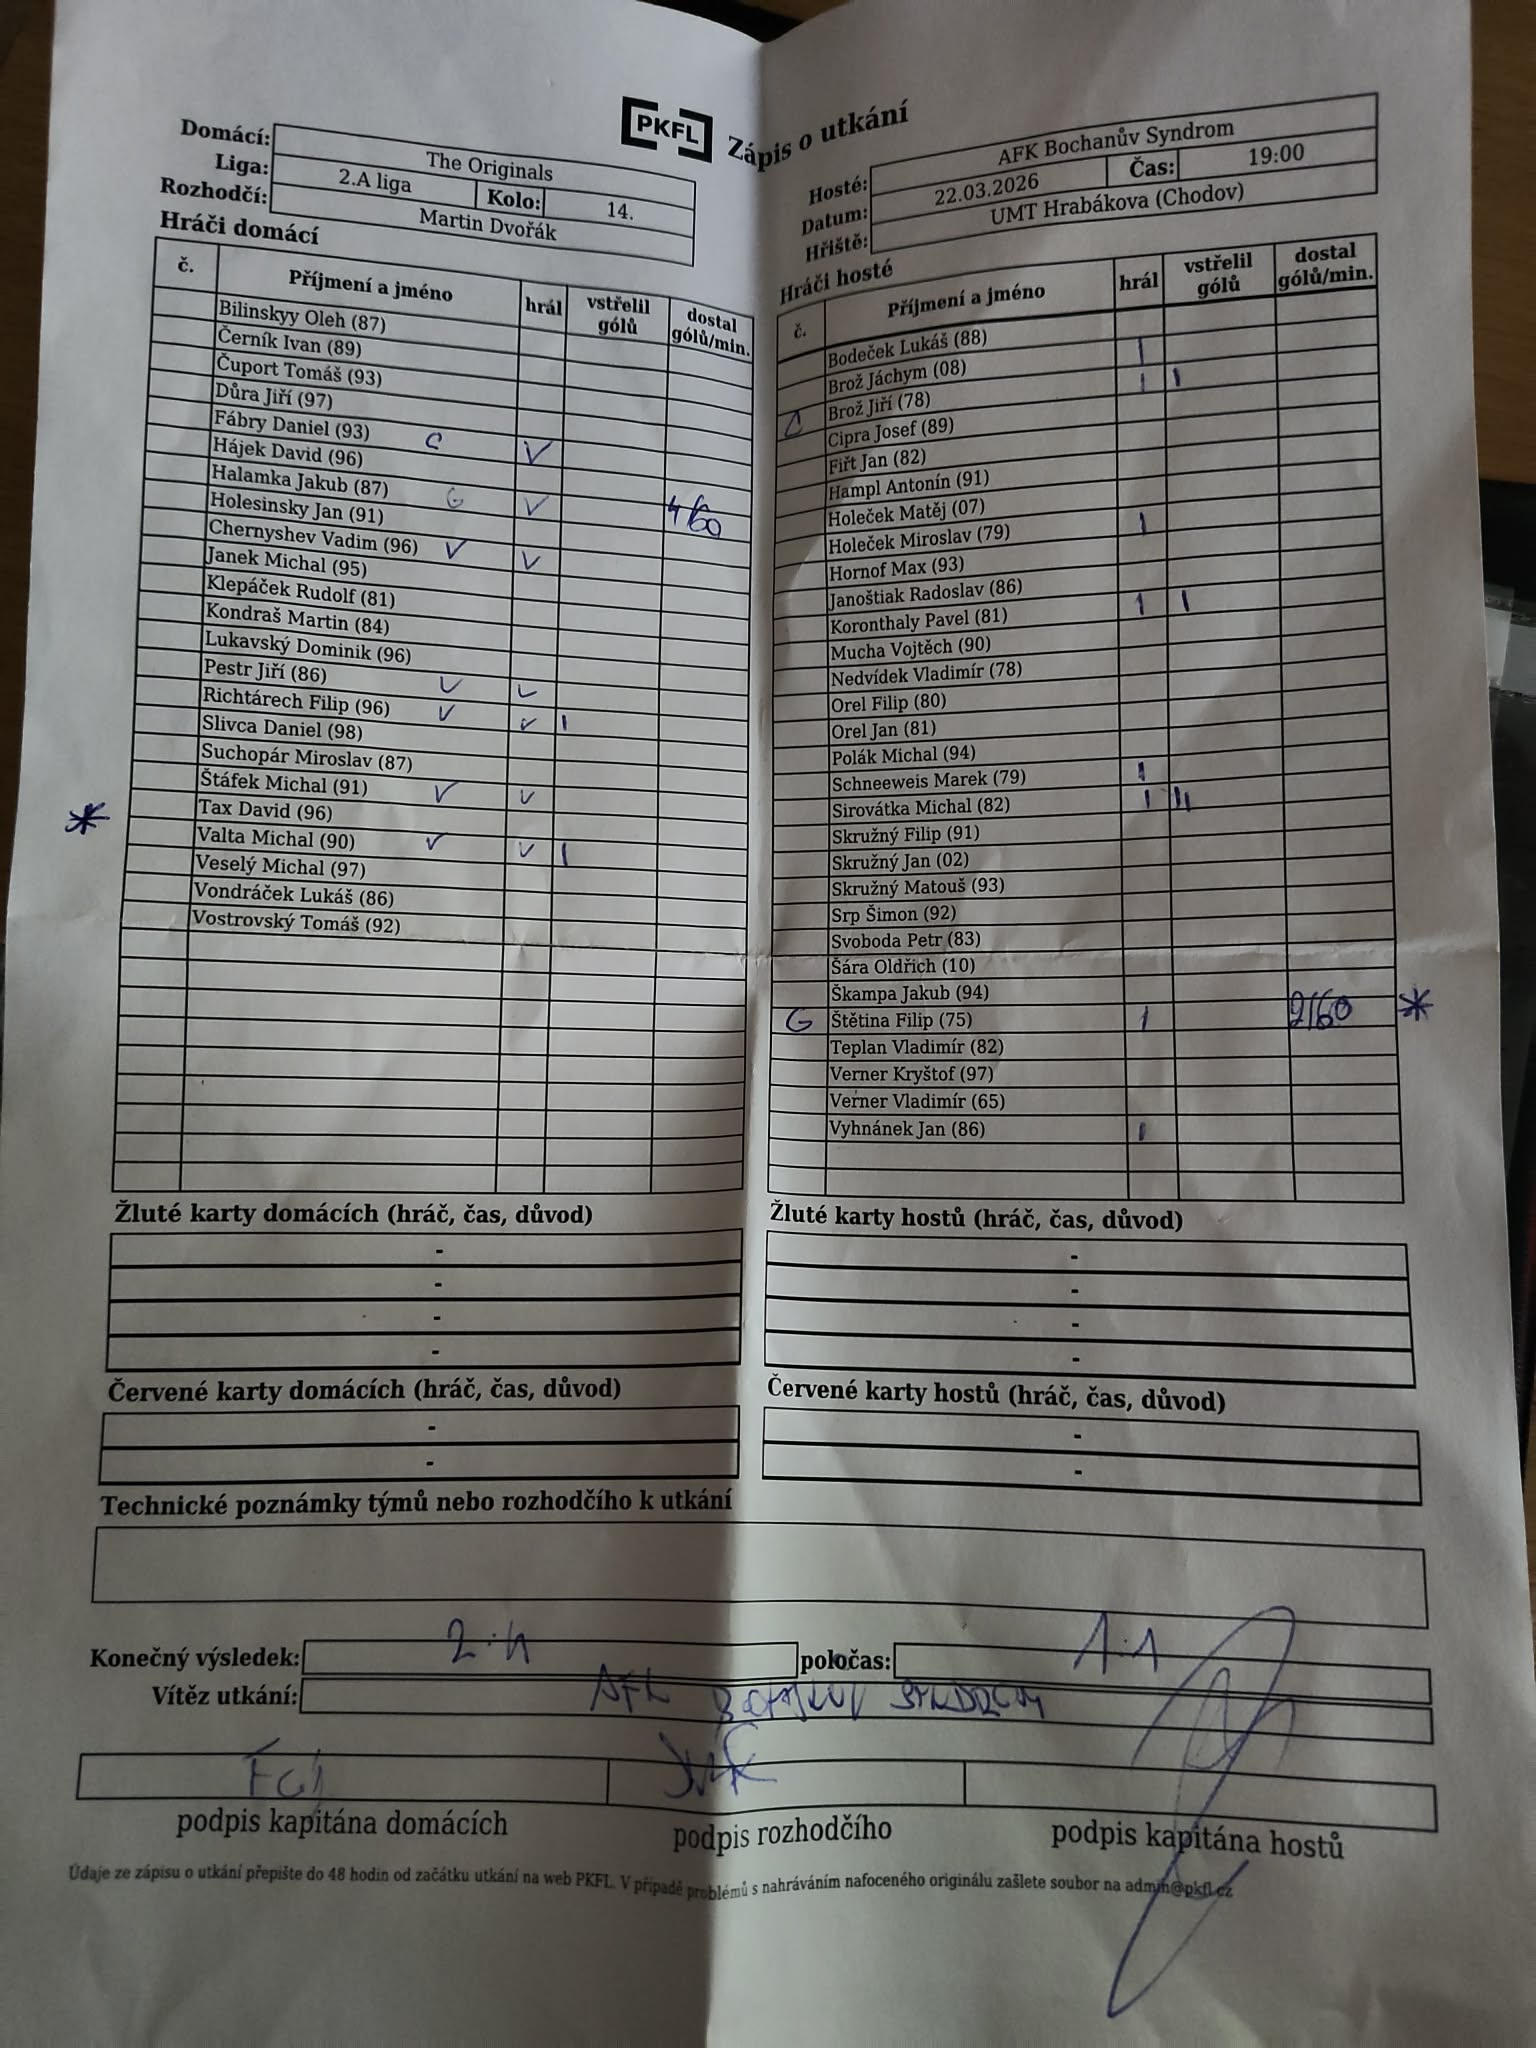 PKFL Zápis o utkání
Domácí: The Originals
Liga: 2.A liga Kolo: 14.
Rozhodčí: Martin Dvořák
Hosté: AFK Bochanův Syndrom
Datum: 22.03.2026 Čas: 19:00
Hřiště: UMT Hrabákova (Chodov)
Hráči domácí
č. Příjmení a jméno hrál vstřelil gólů dostal gólů/min.
Bilinskyy Oleh (87)
Černík Ivan (89)
Čuport Tomáš (93)
Důra Jiří (97)
Fábry Daniel (93) C V
Hájek David (96)
Halamka Jakub (87) G V 4/60
Holesinsky Jan (91)
Chernyshev Vadim (96) V V
Janek Michal (95)
Klepáček Rudolf (81)
Kondraš Martin (84)
Lukavský Dominik (96)
Pestr Jiří (86) V V
Richtárech Filip (96) V V I
Slivca Daniel (98)
Suchopár Miroslav (87)
Štáfek Michal (91) V V
Tax David (96)
* Valta Michal (90) V V I
Veselý Michal (97)
Vondráček Lukáš (86)
Vostrovský Tomáš (92)
Hráči hosté
č. Příjmení a jméno hrál vstřelil gólů dostal gólů/min.
Bodeček Lukáš (88)
Brož Jáchym (08) I
C Brož Jiří (78) I I
Cipra Josef (89)
Fiřt Jan (82)
Hampl Antonín (91)
Holeček Matěj (07)
Holeček Miroslav (79) I
Hornof Max (93)
Janoštiak Radoslav (86)
Koronthaly Pavel (81) I I
Mucha Vojtěch (90)
Nedvídek Vladimír (78)
Orel Filip (80)
Orel Jan (81)
Polák Michal (94)
Schneeweis Marek (79) I
Sirovátka Michal (82) I II
Skružný Filip (91)
Skružný Jan (02)
Skružný Matouš (93)
Srp Šimon (92)
Svoboda Petr (83)
Šára Oldřich (10)
Škampa Jakub (94)
G Štětina Filip (75) I 2/60 *
Teplan Vladimír (82)
Verner Kryštof (97)
Verner Vladimír (65)
Vyhnánek Jan (86) I
Žluté karty domácích (hráč, čas, důvod)
-
-
-
-
Žluté karty hostů (hráč, čas, důvod)
-
-
-
-
Červené karty domácích (hráč, čas, důvod)
-
-
Červené karty hostů (hráč, čas, důvod)
-
-
Technické poznámky týmů nebo rozhodčího k utkání
Konečný výsledek: 2:4 poločas: 1:1
Vítěz utkání: AFK BOCHANŮV SYNDROM
podpis kapitána domácích podpis rozhodčího podpis kapitána hostů
Údaje ze zápisu o utkání přepište do 48 hodin od začátku utkání na web PKFL. V případě problémů s nahráváním nafoceného originálu zašlete soubor na admin@pkfl.cz